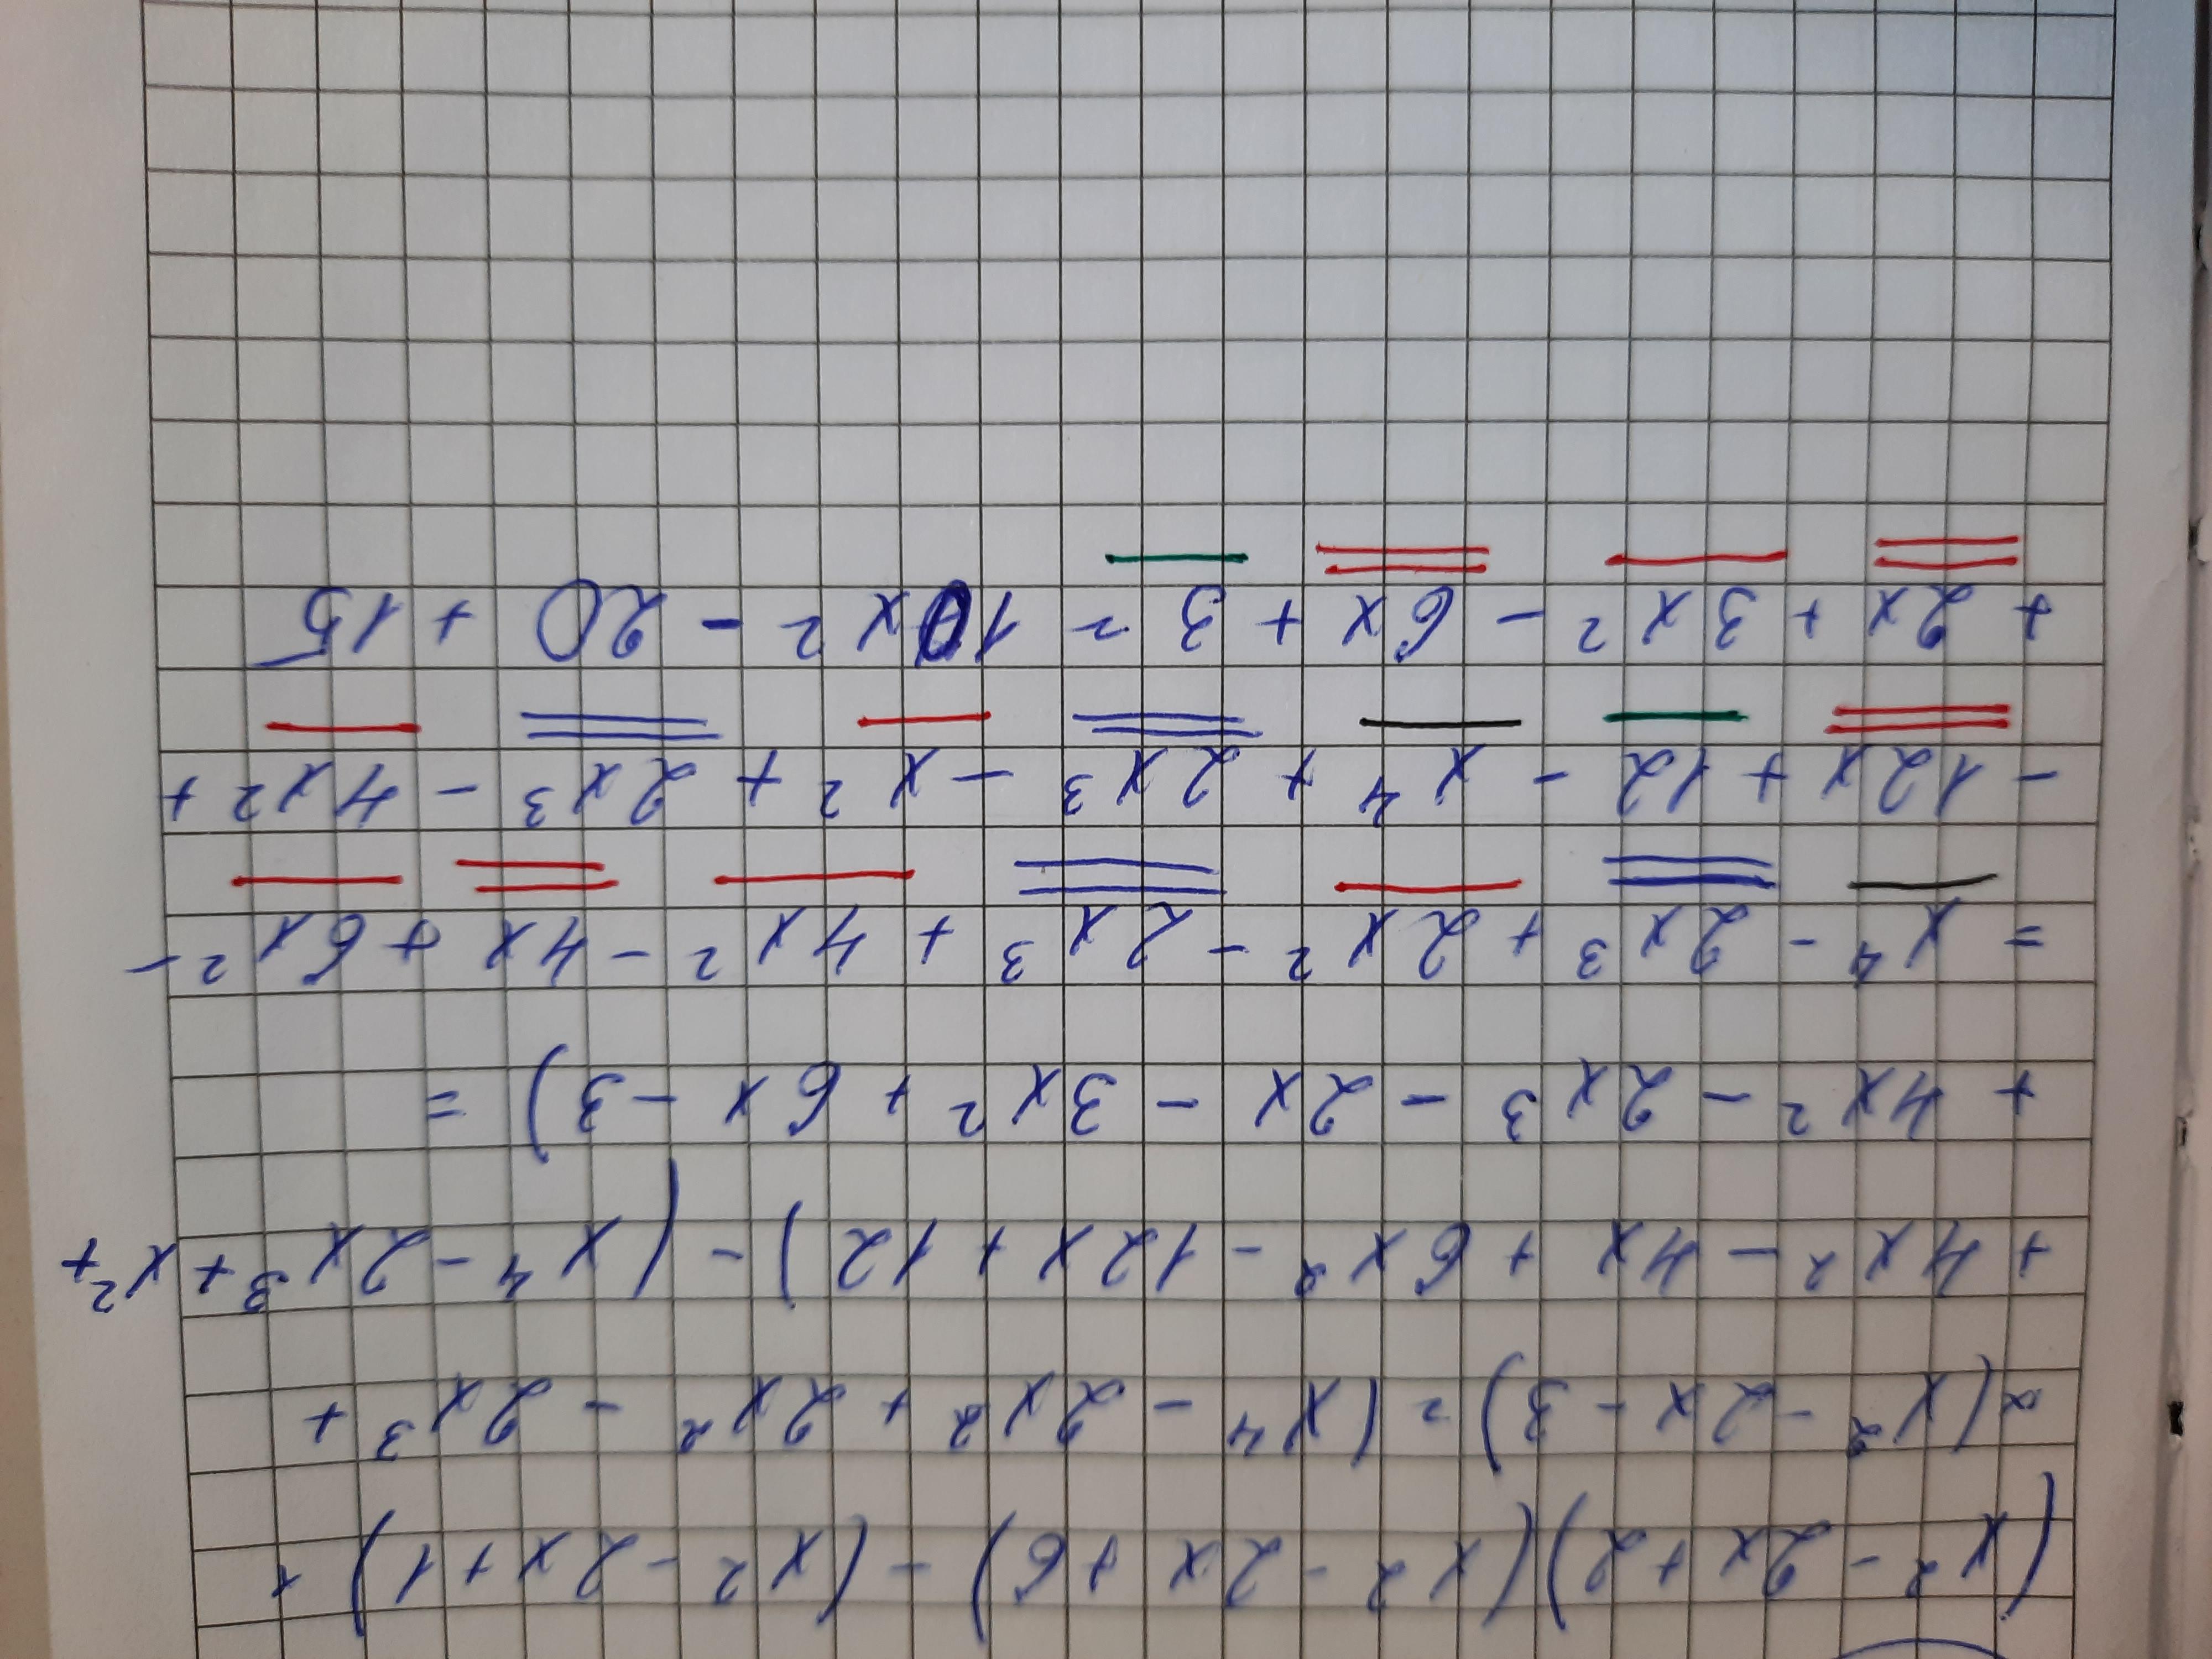 (x² - 2x + 2)(x² - 2x + 6) - (x² - 2x + 1) ×
× (x² - 2x - 3) = (x⁴ - 2x² + 2x² - 2x³ +
+ 4x² - 4x + 6x² - 12x + 12) - (x⁴ - 2x³ + x² +
+ 4x² - 2x³ - 2x - 3x² + 6x - 3) =
= x⁴ - 2x³ + 2x² - 2x³ + 4x² - 4x + 6x² -
- 12x + 12 - x⁴ + 2x³ - x² + 2x³ - 4x² +
+ 2x + 3x² - 6x + 3 = 10x² - 20 + 15